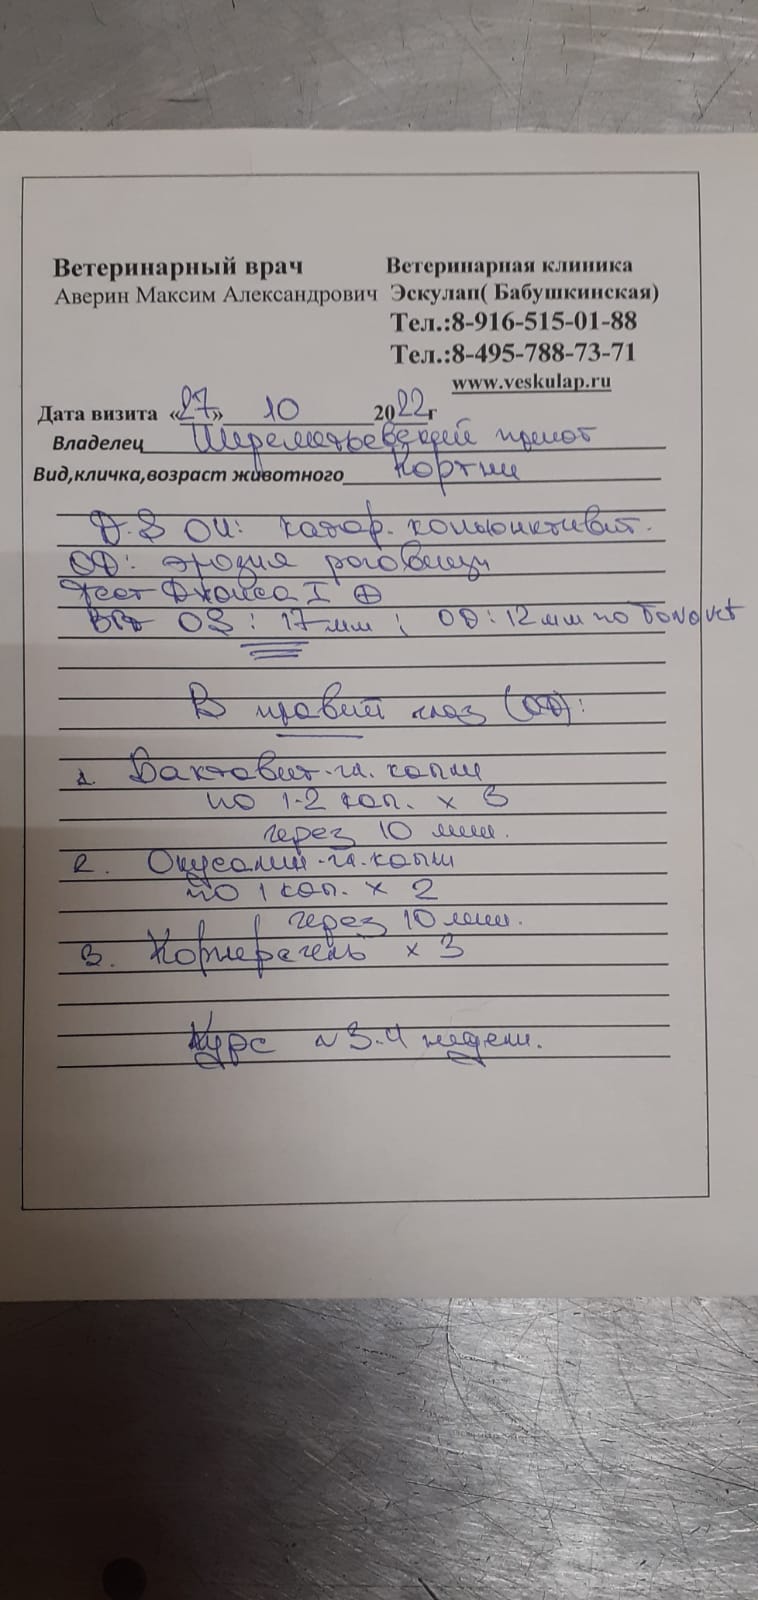 Ветеринарный врач
Ветеринарная клиника
Аверин Максим Александрович
Эскулап( Бабушкинская)
Тел.:8-916-515-01-88
Тел.:8-495-788-73-71
www.veskulap.ru
Дата визита «27» 10 2022г
Владелец Шереметьевский приют
Вид,кличка,возраст животного Кортни
D.S OU: катар. конъюнктивит.
OD: эрозия роговицы
Тест Джонса I ⊕
OS : 17 мм ; OD : 12 мм по
В правый глаз (OD):
1. Бактавит-гл. капли
по 1-2 кап. x 3
через 10 мин.
2. Окусалин-гл. капли
по 1 кап. x 2
через 10 мин.
3. Корнерегель x 3
Курс ~ 3-4 недели.